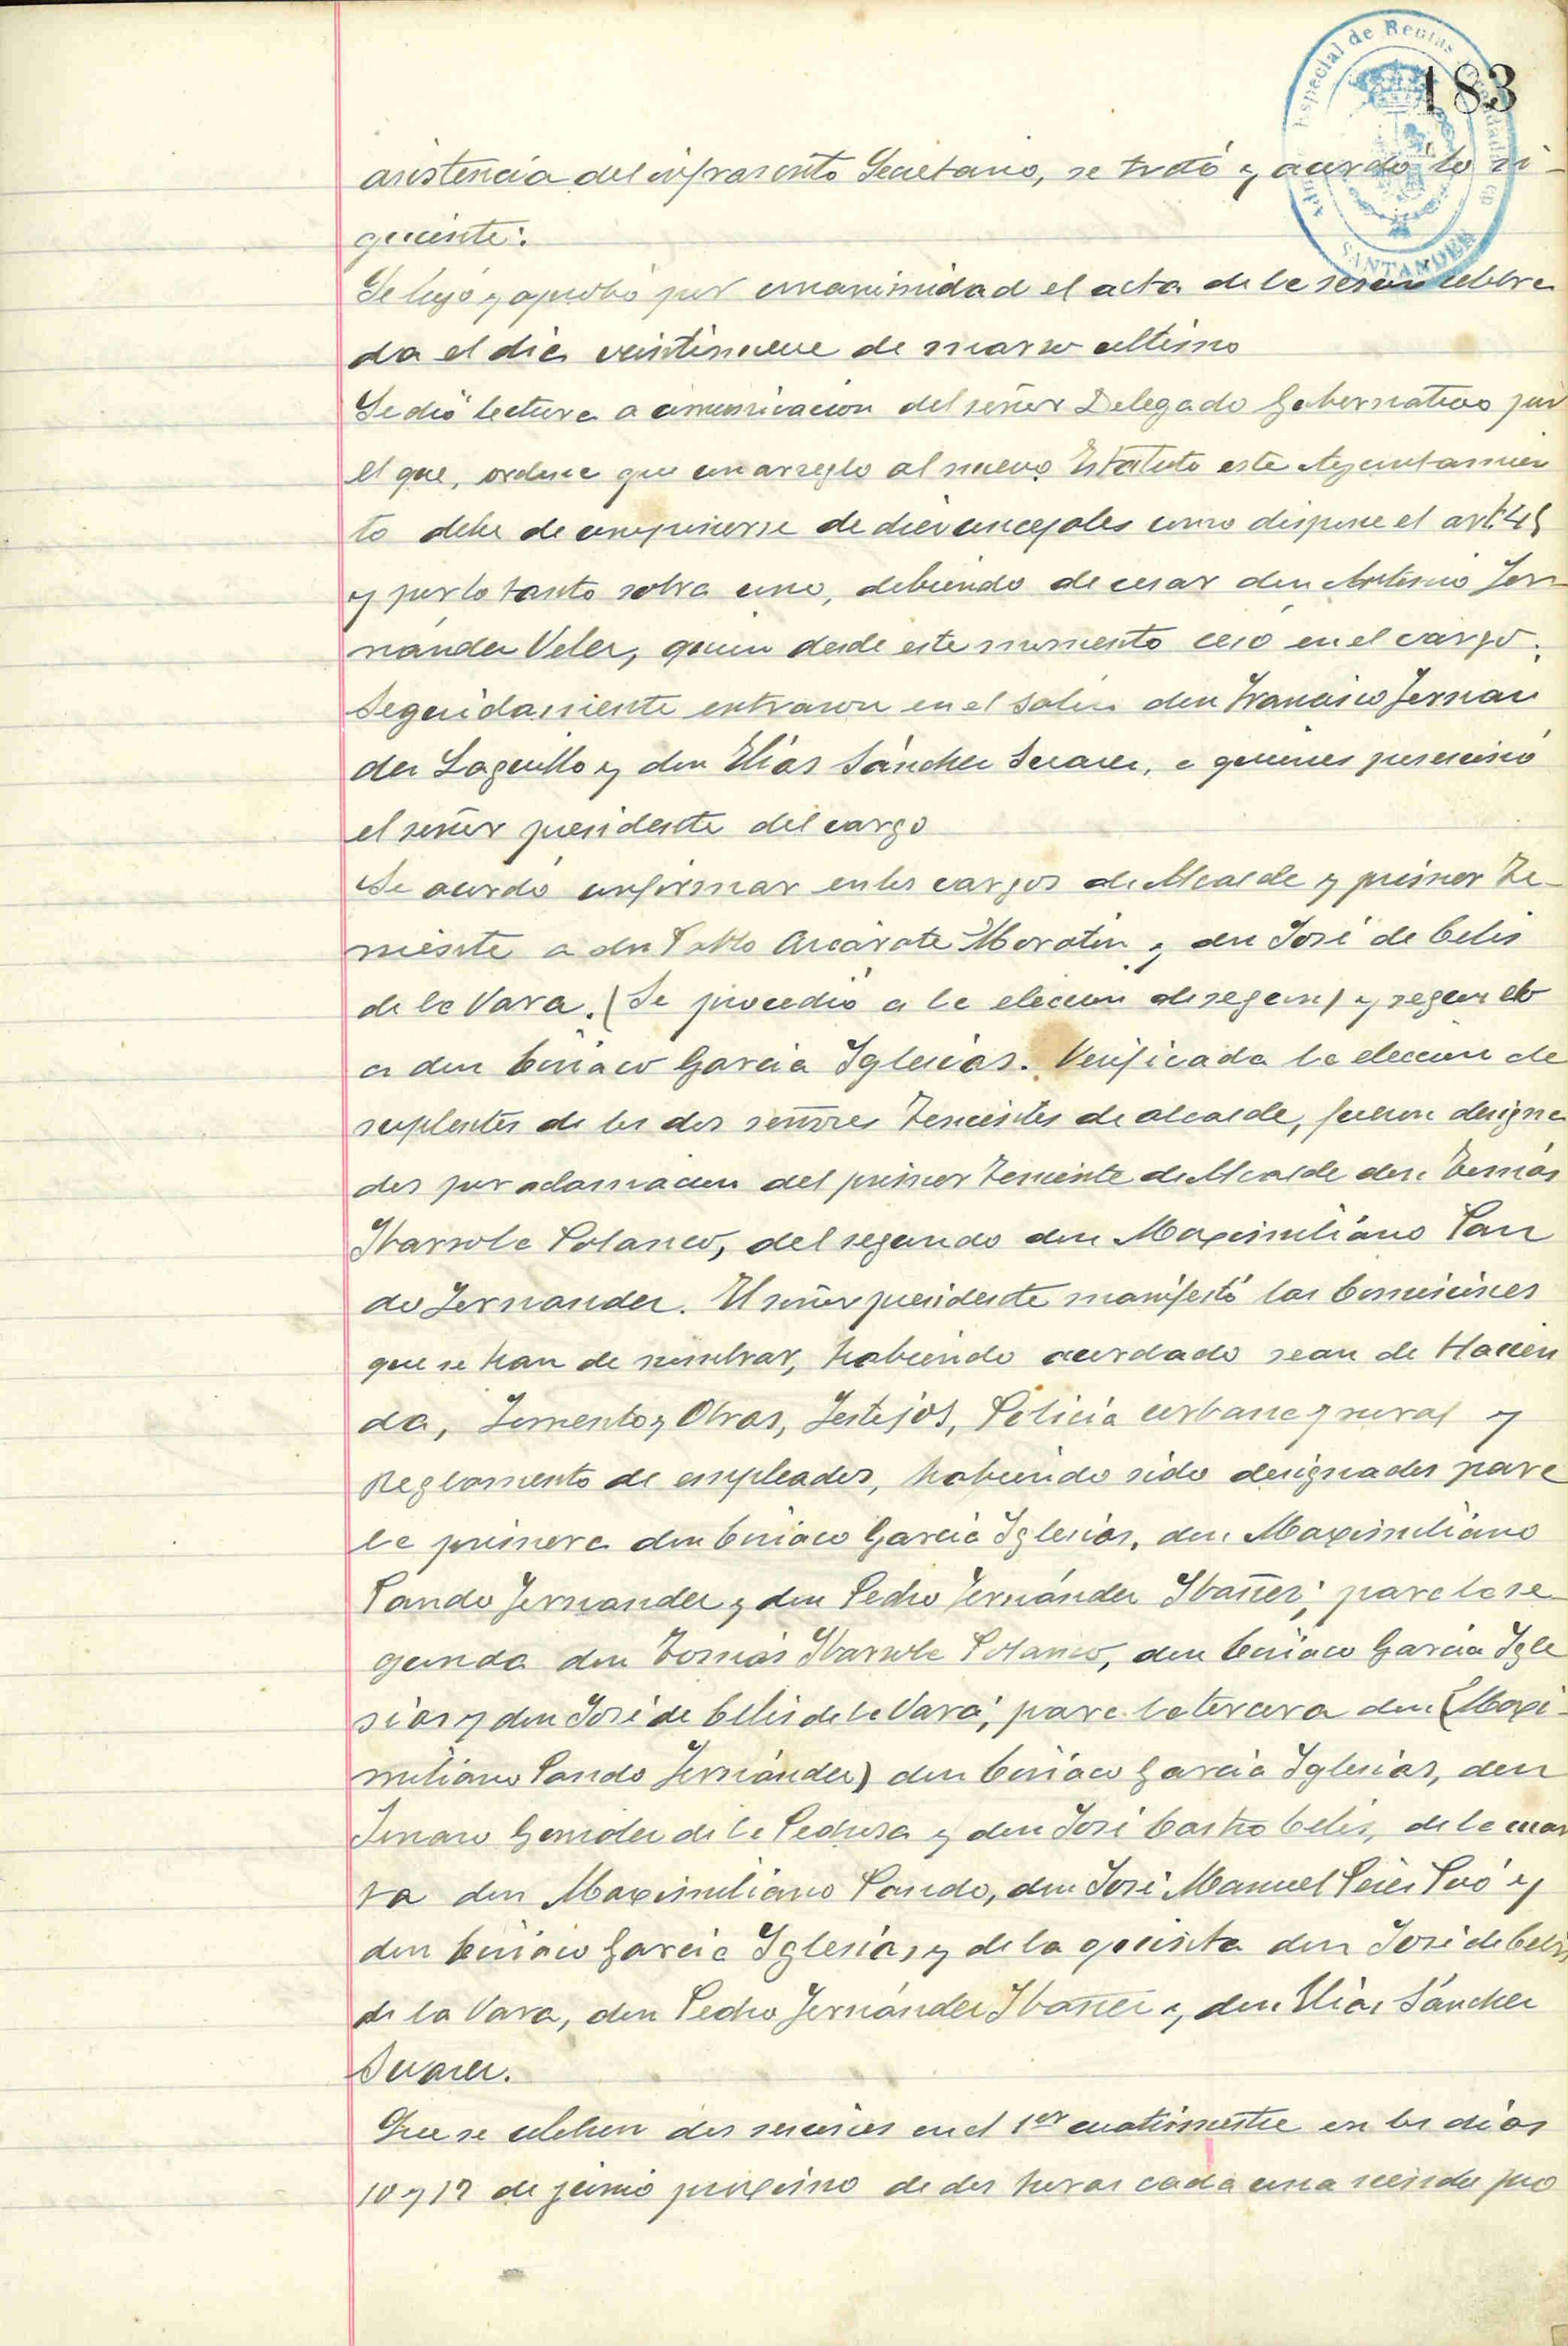 183
Especial de Rentas
SANTANDER
asistencia del infrascrito Secretario, se trató y acordó lo si-
guiente:
Se leyó y aprobó por unanimidad el acta de la sesión celebra
da el día veintinueve de marzo último
Se dió lectura a comunicacion del señor Delegado Gubernativo por
el que, ordena que con arreglo al nuevo Estatuto este Ayuntamien
to debe de componerse de diez concejales como dispone el art. 45
y por lo tanto sobra uno, debiendo de cesar don Antonio Fer
nández Velez, quien desde este momento cesó en el cargo.
Seguidamente entraron en el salón don Francisco Fernan
dez Laguillo y don Elías Sánchez Suarez, a quienes posesionó
el señor presidente del cargo
Se acordó confirmar en los cargos de Alcalde y primer Te-
niente a don Pablo Azcárate Moratín y don José de Celis
de la Vara. (Se procedió a la eleccion de segun) y segundo
a don Ciriaco Garcia Iglesias. Verificada la eleccion de
suplentes de los dos señores Tenientes de alcalde, fueron designa
dos por aclamacion del primer Teniente de Alcalde don Tomás
Ibarrola Polanco, del segundo don Maximiliano Pan
do Fernandez. El señor presidente manifestó las Comisiones
que se han de nombrar, habiendo acordado sean de Hacien
da, Fomento y Obras, Festejos, Policia urbana y rural y
Reglamento de empleados, habiendo sido designados para
la primera don Ciriaco Garcia Iglesias, don Maximiliano
Pando Fernandez y don Pedro Fernández Ibañez; para la se
gunda don Tomás Ibarrola Polanco, don Ciriaco Garcia Igle
sias y don José de Celis de la Vara; para la tercera don (Maxi-
miliano Pando Fernández) don Ciriaco Garcia Iglesias, don
Genaro González de la Pedrosa y don José Castro Celis, de la cuar
ta don Maximiliano Pando, don José Manuel Pérez Poó y
don Ciriaco Garcia Iglesias, y de la quinta don José de Celis
de la Vara, don Pedro Fernández Ibañez y don Elías Sánchez
Suarez.
Que se celebren dos sesiones en el 1er cuatrimestre en los días
10 y 17 de junio proximo de dos horas cada una siendo pro